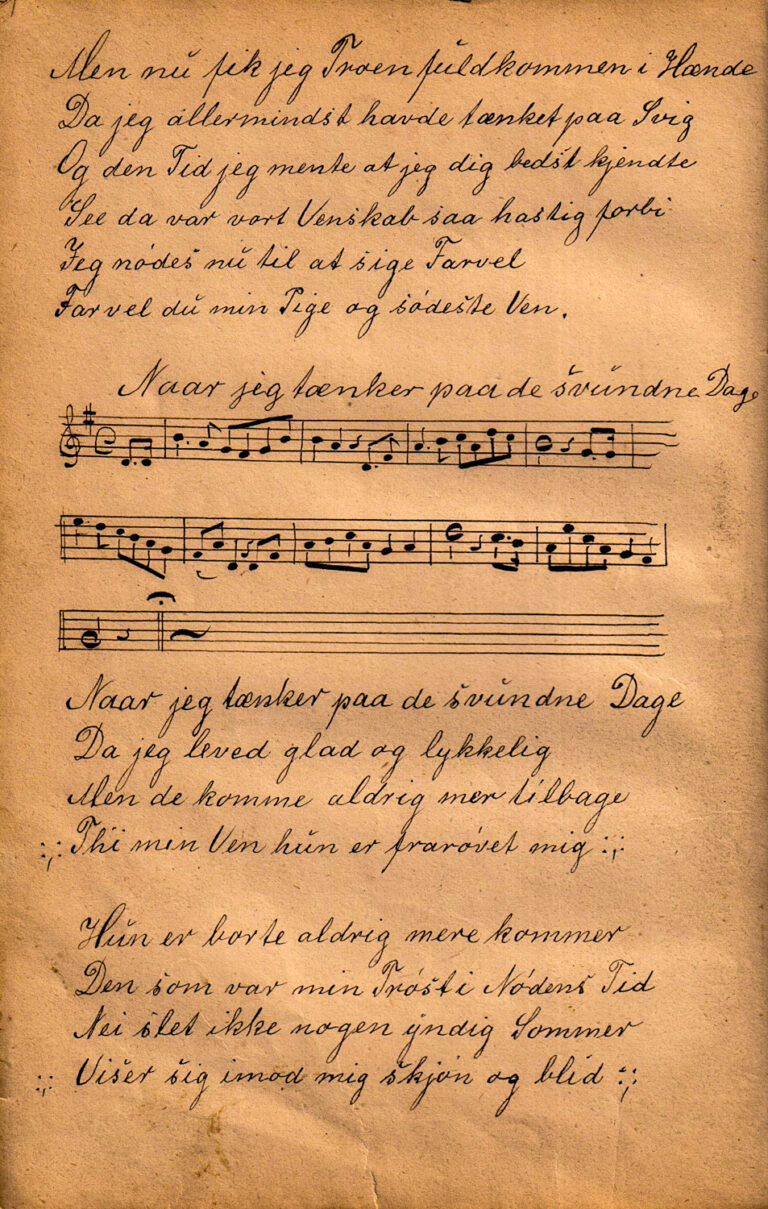 Men nu fik jeg Troen fuldkommen i Hænde
Da jeg allermindst havde tænket paa Svig
Og den Tid jeg mente at jeg dig bedst kjendte
See da var vort Venskab saa hastig forbi
Jeg nødes nu til at sige Farvel
Farvel du min Pige og sødeste Ven.
Naar jeg tænker paa de svundne Dage
Naar jeg tænker paa de svundne Dage
Da jeg leved glad og lykkelig
Men de komme aldrig mer tilbage
:,: Thi min Ven hun er frarøvet mig :,:
Hun er borte aldrig mere kommer
Den som var min Trøst i Nødens Tid
Nei slet ikke nogen yndig Sommer
:,: Viser sig imod mig skjøn og blid :,: